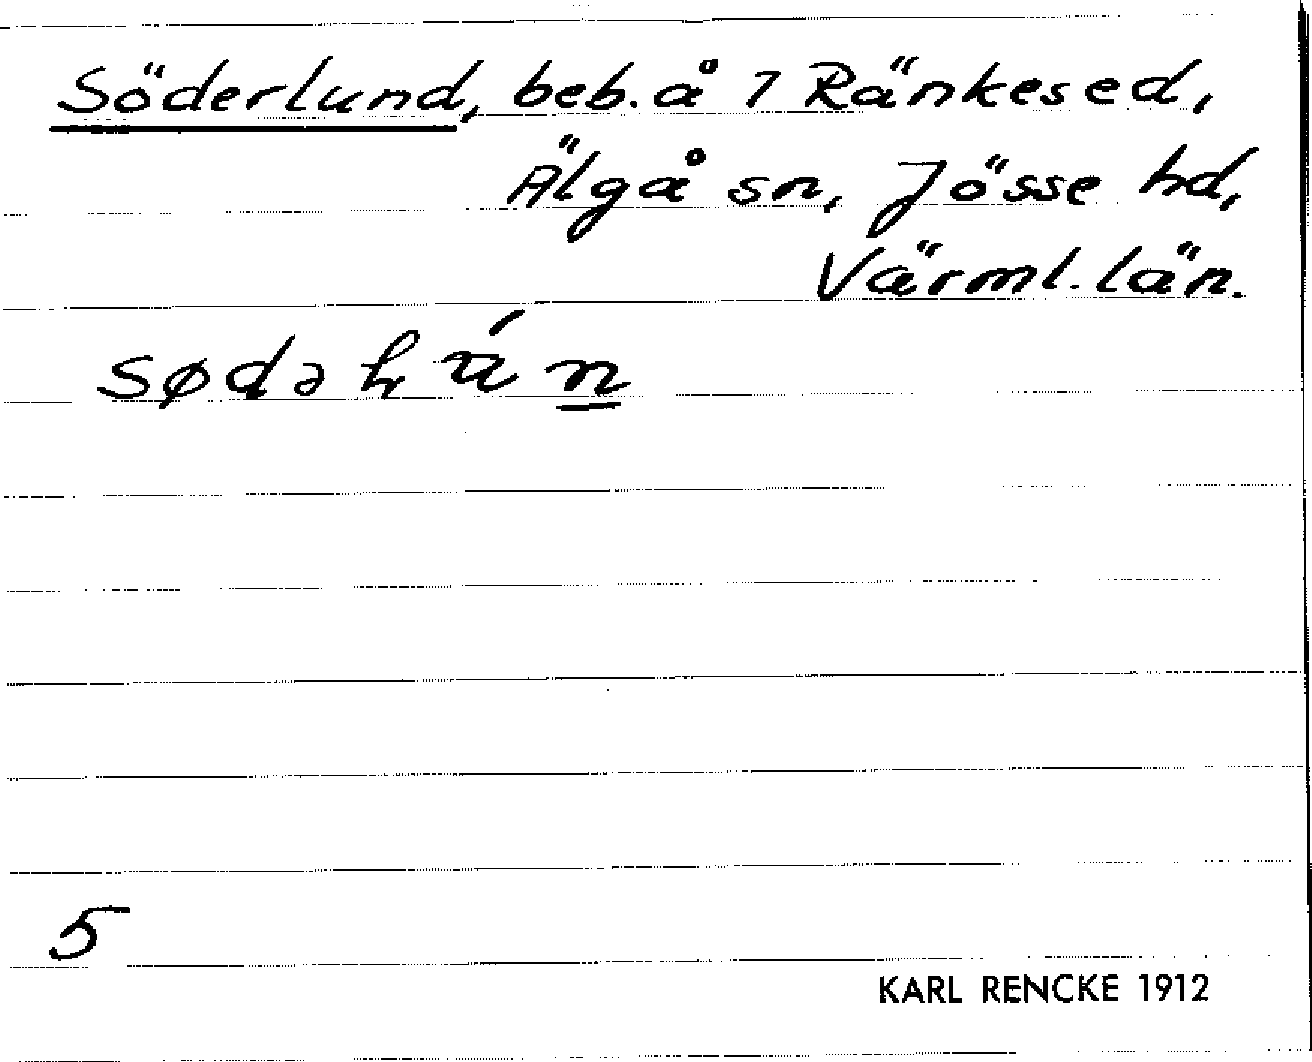 Söderlund, beb. å 7 Ränkesed,
Älgå sn, Jösse hd,
Värml. län.
5
KARL RENCKE 1912